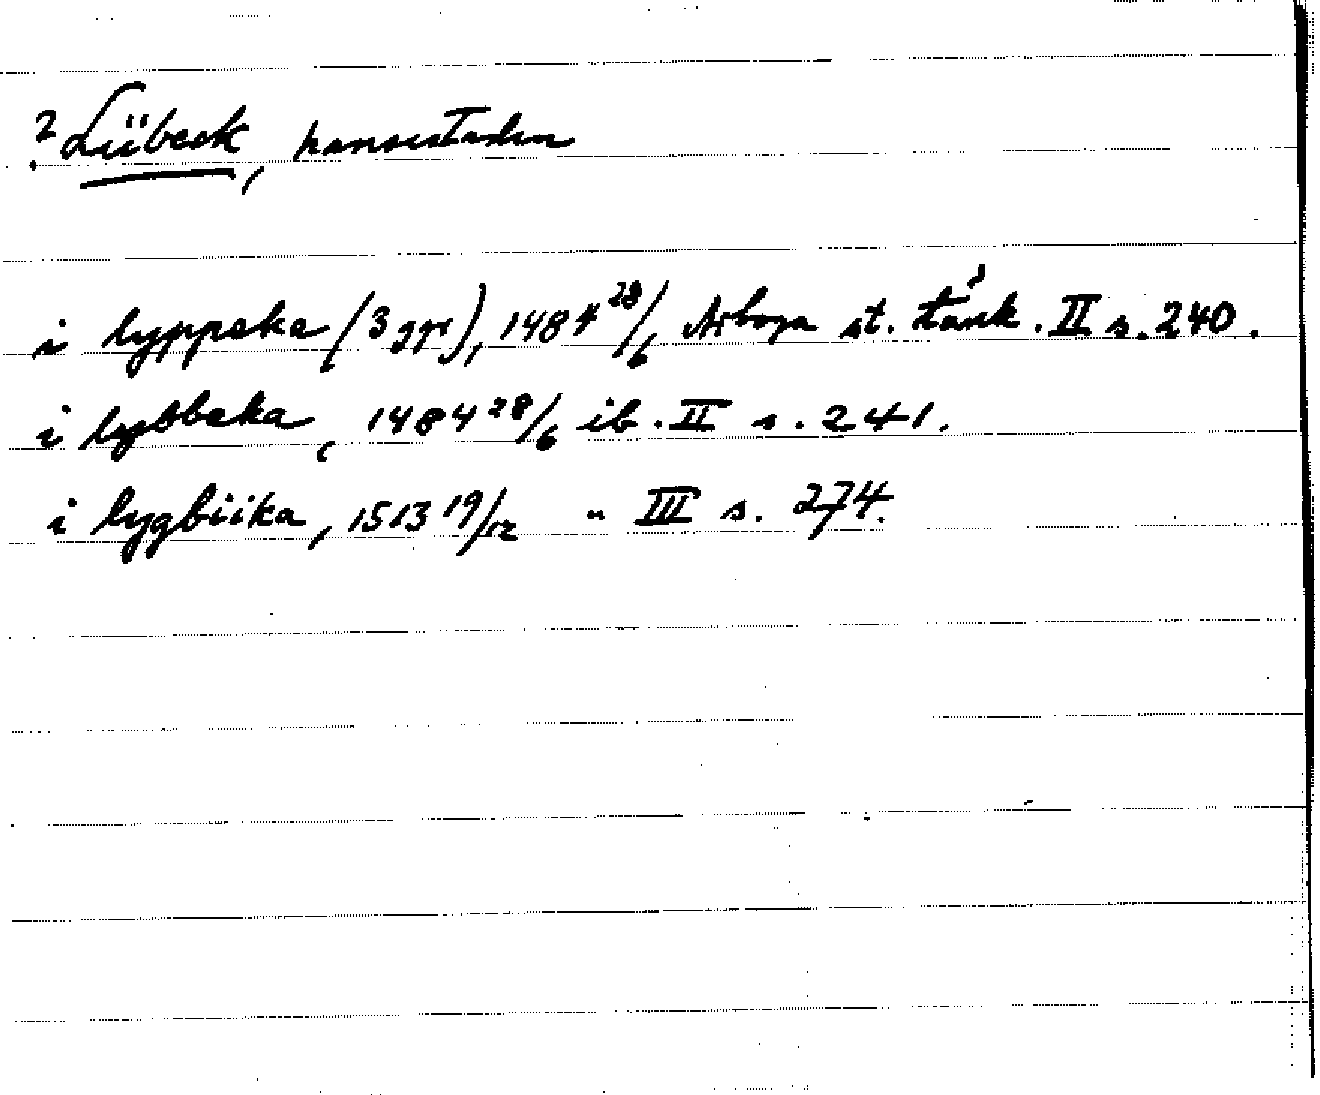 ? Lübeck, hansestaden
i lyppeka (3 ggr), 1484 28/6 Arboga st. tänk. II s. 240.
i lybbeka, 1484 28/6 ib. II s. 241.
i lygbiika, 1513 19/12 " III s. 274.